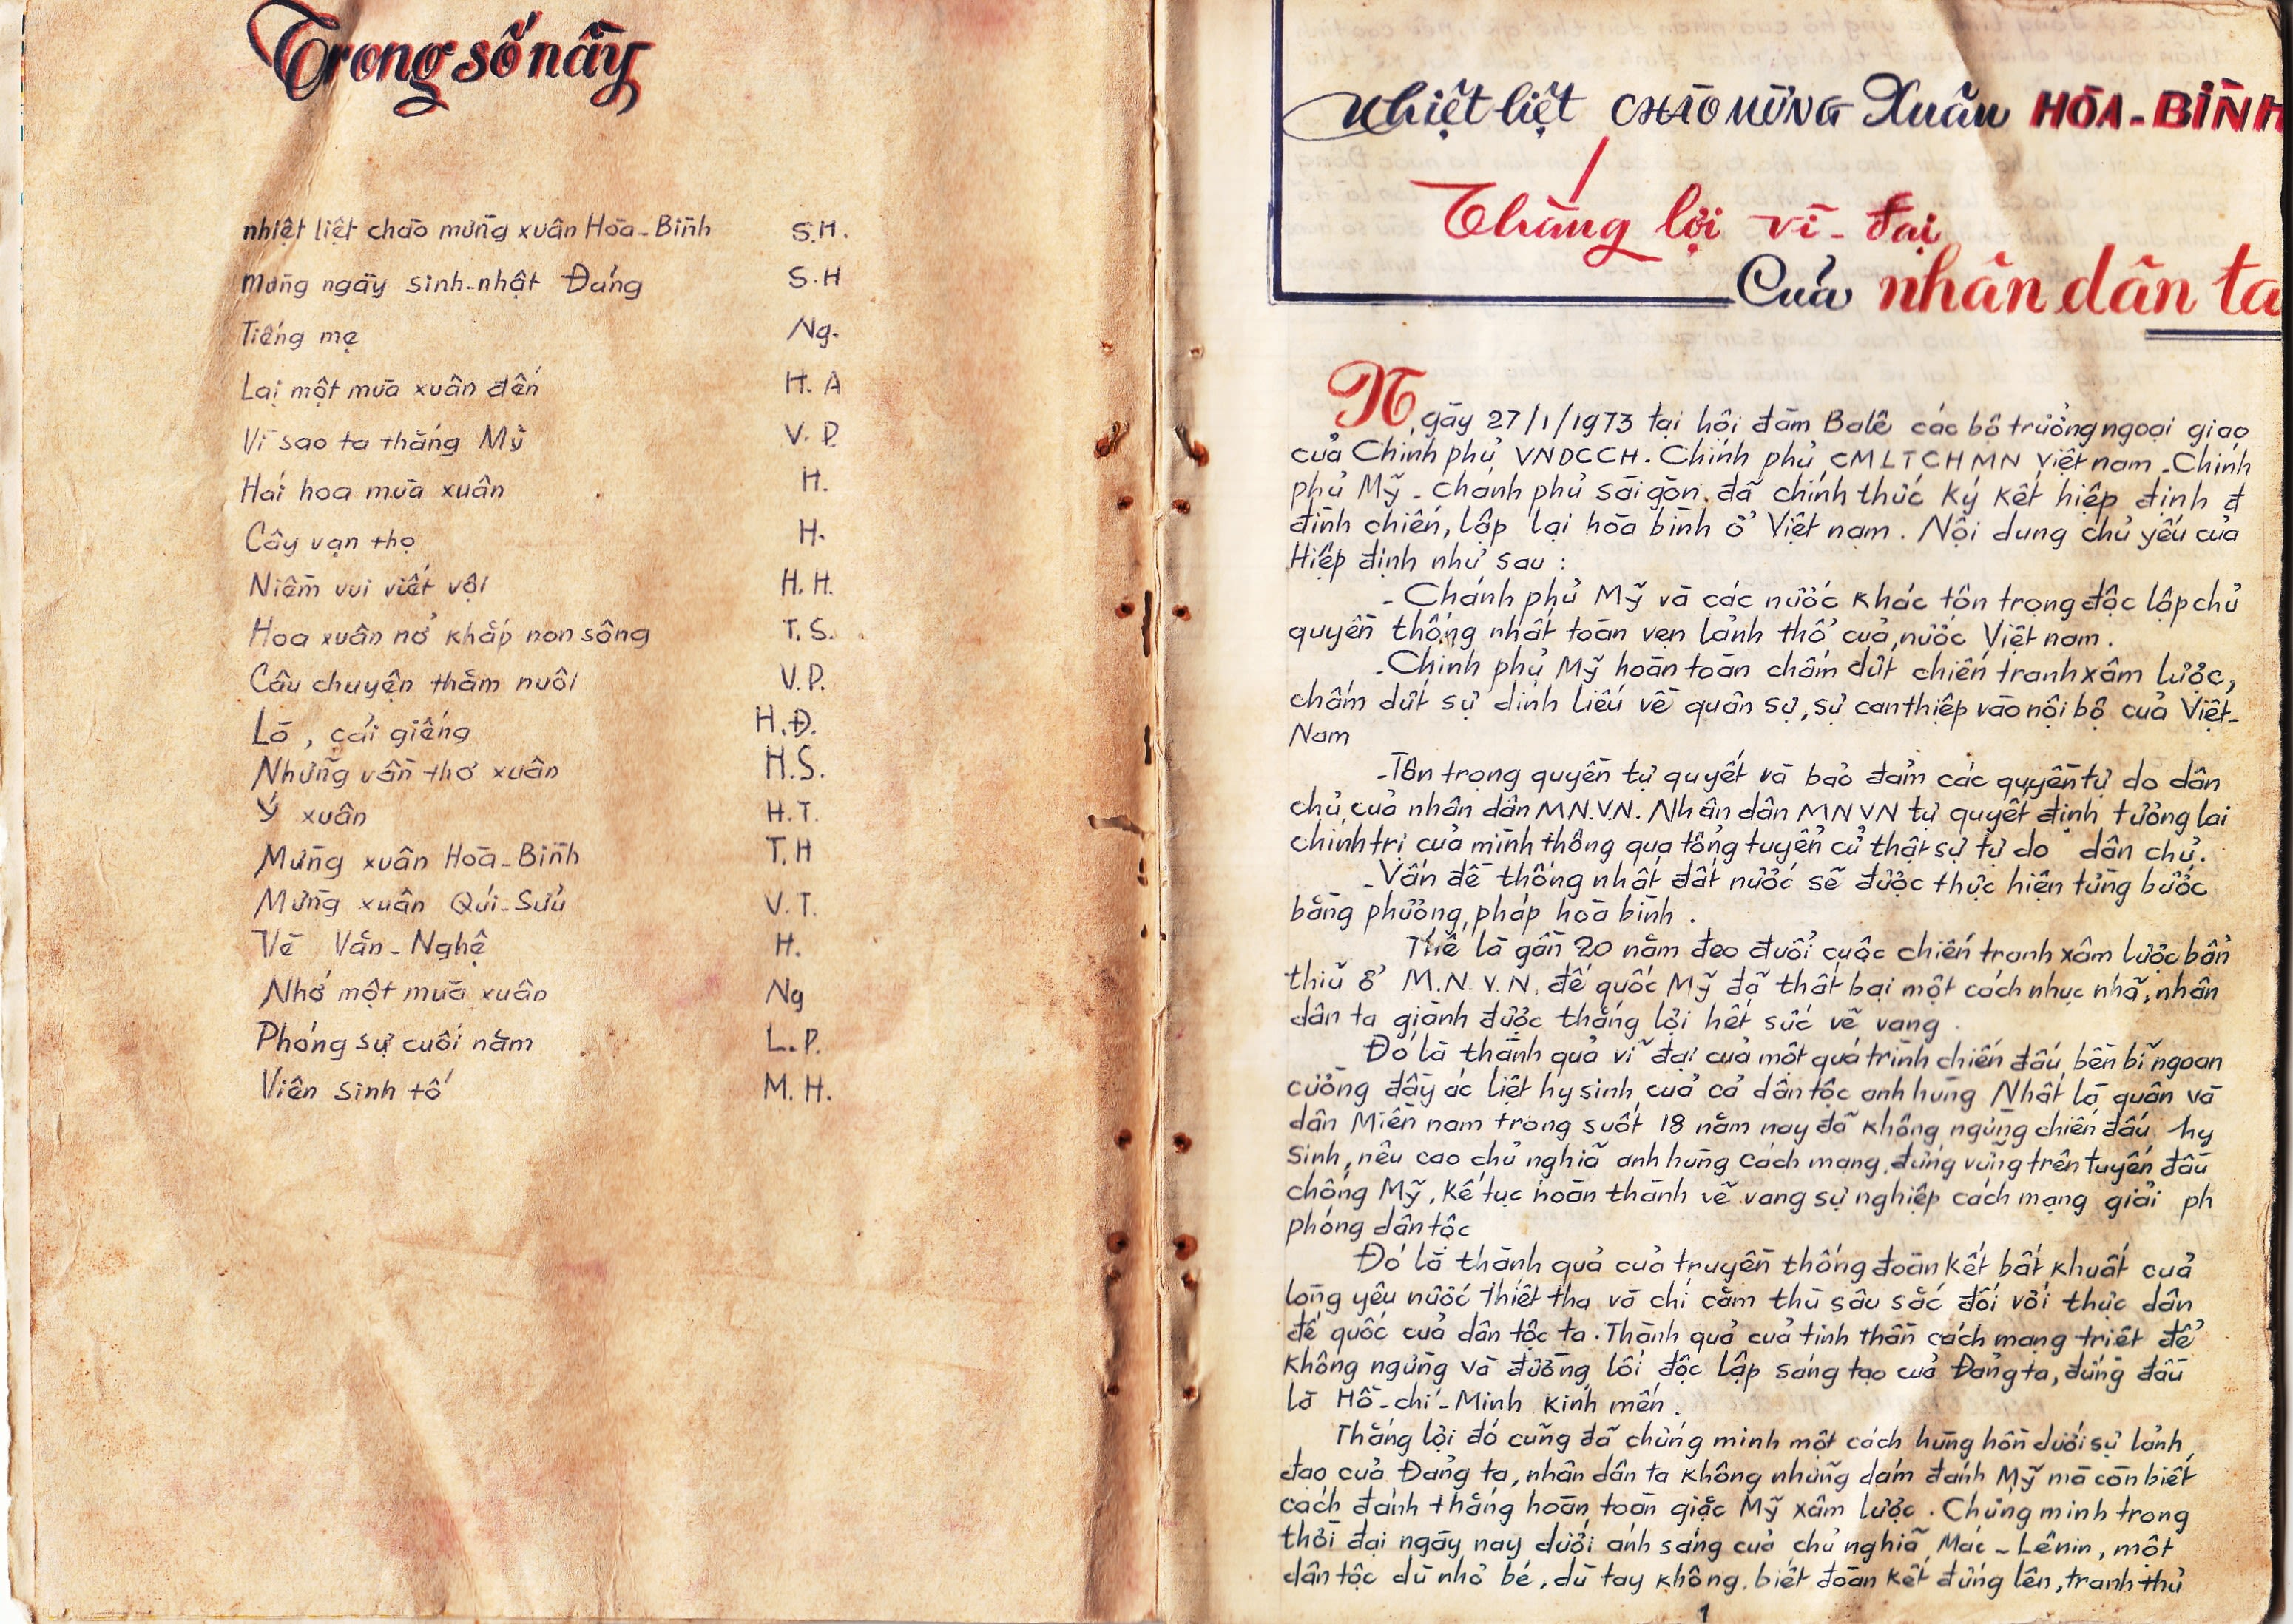 Trong số nầy
nhiệt liệt chào mừng xuân Hòa-Bình S.H.
Mừng ngày sinh-nhật Đảng S.H
Tiếng mẹ Ng.
Lại một mùa xuân đến H. A
Vì sao ta thắng Mỹ V. P.
Hái hoa mùa xuân H.
Cây vạn thọ H.
Niềm vui viết vội H. H.
Hoa xuân nở khắp non sông T. S.
Câu chuyện thăm nuôi V.P.
Lò, cái giếng H.Đ.
Những vần thơ xuân H.S.
Ý xuân H.T.
Mừng xuân Hòa-Bình T.H
Mừng xuân Qúi-Sửu V.T.
Vè Văn-Nghệ H.
Nhớ một mùa xuân Ng
Phóng sự cuối năm L.P.
Viên sinh tố M. H.
Nhiệt liệt CHÀO MỪNG Xuân HÒA-BÌNH
Thắng lợi vĩ-đại
Của nhân dân ta
Ngày 27/1/1973 tại hội đàm Balê các bộ trưởng ngoại giao
của Chính phủ VNDCCH. Chính phủ CMLTCHMN Việt nam. Chính
phủ Mỹ - chánh phủ sài gòn. đã chính thức ký kết hiệp định đ
đình chiến, lập lại hòa bình ở Việt nam. Nội dung chủ yếu của
Hiệp định như sau :
- Chánh phủ Mỹ và các nước khác tôn trọng độc lập chủ
quyền thống nhất toàn vẹn lảnh thổ của nước Việt nam.
- Chính phủ Mỹ hoàn toàn chấm dứt chiến tranh xâm lược,
chấm dứt sự dính líếu về quân sự, sự can thiệp vào nội bộ của Việt-
Nam
- Tôn trọng quyền tự quyết và bảo đảm các quyền tự do dân
chủ của nhân dân MN.VN. Nhân dân MNVN tự quyết định tương lai
chính trị của mình thông qua tổng tuyển cử thật sự tự do dân chủ.
- Vấn đề thống nhất đất nước sẽ được thực hiện từng bước
bằng phương pháp hòa bình.
Thế là gần 20 năm đeo đuổi cuộc chiến tranh xâm lược bẩn
thiủ ở M.N.V.N. đế quốc Mỹ đã thất bại một cách nhục nhã, nhân
dân ta giành được thắng lợi hết sức vẽ vang.
Đó là thành quả vĩ đại của một quá trình chiến đấu bền bỉ ngoan
cường đầy ác liệt hy sinh của cả dân tộc anh hùng Nhất là quân và
dân Miền nam trong suốt 18 năm nay đã không ngừng chiến đấu hy
Sinh, nêu cao chủ nghĩa anh hùng cách mạng, đứng vững trên tuyến đầu
chống Mỹ, kế tục hoàn thành vẽ vang sự nghiệp cách mạng giải ph
phóng dân tộc
Đó là thành quả của truyền thống đoàn kết bất khuất của
lòng yêu nước thiết tha và chí căm thù sâu sắc đối với thực dân
đế quốc của dân tộc ta. Thành quả của tinh thần cách mạng triết để
không ngừng và đường lối độc lập sáng tạo của Đảng ta, đứng đầu
là Hồ-chí-Minh kính mến.
Thắng lợi đó cũng đã chứng minh một cách hùng hồn dưới sự lảnh
đạo của Đảng ta, nhân dân ta không những dám đánh Mỹ mà còn biết
cách đánh thắng hoàn toàn giặc Mỹ xâm lược. Chứng minh trong
thời đại ngày nay dưới ánh sáng của chủ nghĩa Mác-Lênin, một
dân tộc dù nhỏ bé, dù tay không, biết đoàn kết đứng lên, tranh thủ
1